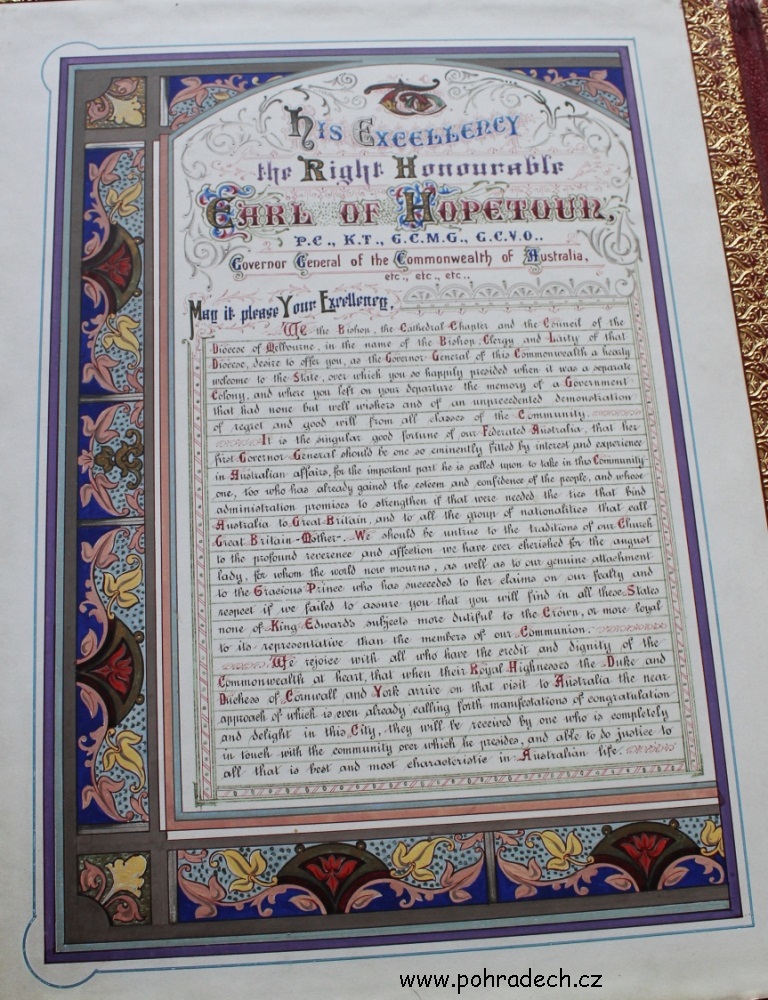 To
His Excellency
the Right Honourable
Earl of Hopetoun,
P.C., K.T., G.C.M.G., G.C.V.O..
Governor General of the Commonwealth of Australia,
etc., etc., etc..
May it please Your Excellency,
We the Bishop, the Cathedral Chapter and the Council of the
Diocese of Melbourne, in the name of the Bishop, Clergy and Laity of that
Diocese, desire to offer you, as the Governor General of this Commonwealth a hearty
welcome to the State, over which you so happily presided when it was a separate
Colony, and where you left on your departure the memory of a Government
that had none but well wishers and of an unprecedented demonstration
of regret and good will from all classes of the Community.
It is the singular good fortune of our Federated Australia, that her
first Governor General should be one so eminently fitted by interest and experience
in Australian affairs, for the important part he is called upon to take in this Community
one, too who has already gained the esteem and confidence of the people, and whose
administration promises to strengthen if that were needed the ties that bind
Australia to Great Britain, and to all the group of nationalities that call
Great Britain-Mother-. We should be untrue to the traditions of our Church
to the profound reverence and affection we have ever cherished for the august
lady, for whom the world now mourns, as well as to our genuine attachment
to the Gracious Prince who has succeeded to her claims on our fealty and
respect if we failed to assure you that you will find in all these States
none of King Edward's subjects more dutiful to the Crown, or more loyal
to its representative than the members of our Communion.
We rejoice with all who have the credit and dignity of the
Commonwealth at heart, that when their Royal Highnesses the Duke and
Duchess of Cornwall and York arrive on that visit to Australia the near
approach of which is even already calling forth manifestations of congratulation
and delight in this City, they will be received by one who is completely
in touch with the community over which he presides, and able to do justice to
all that is best and most characteristic in Australian life.
www.pohradech.cz